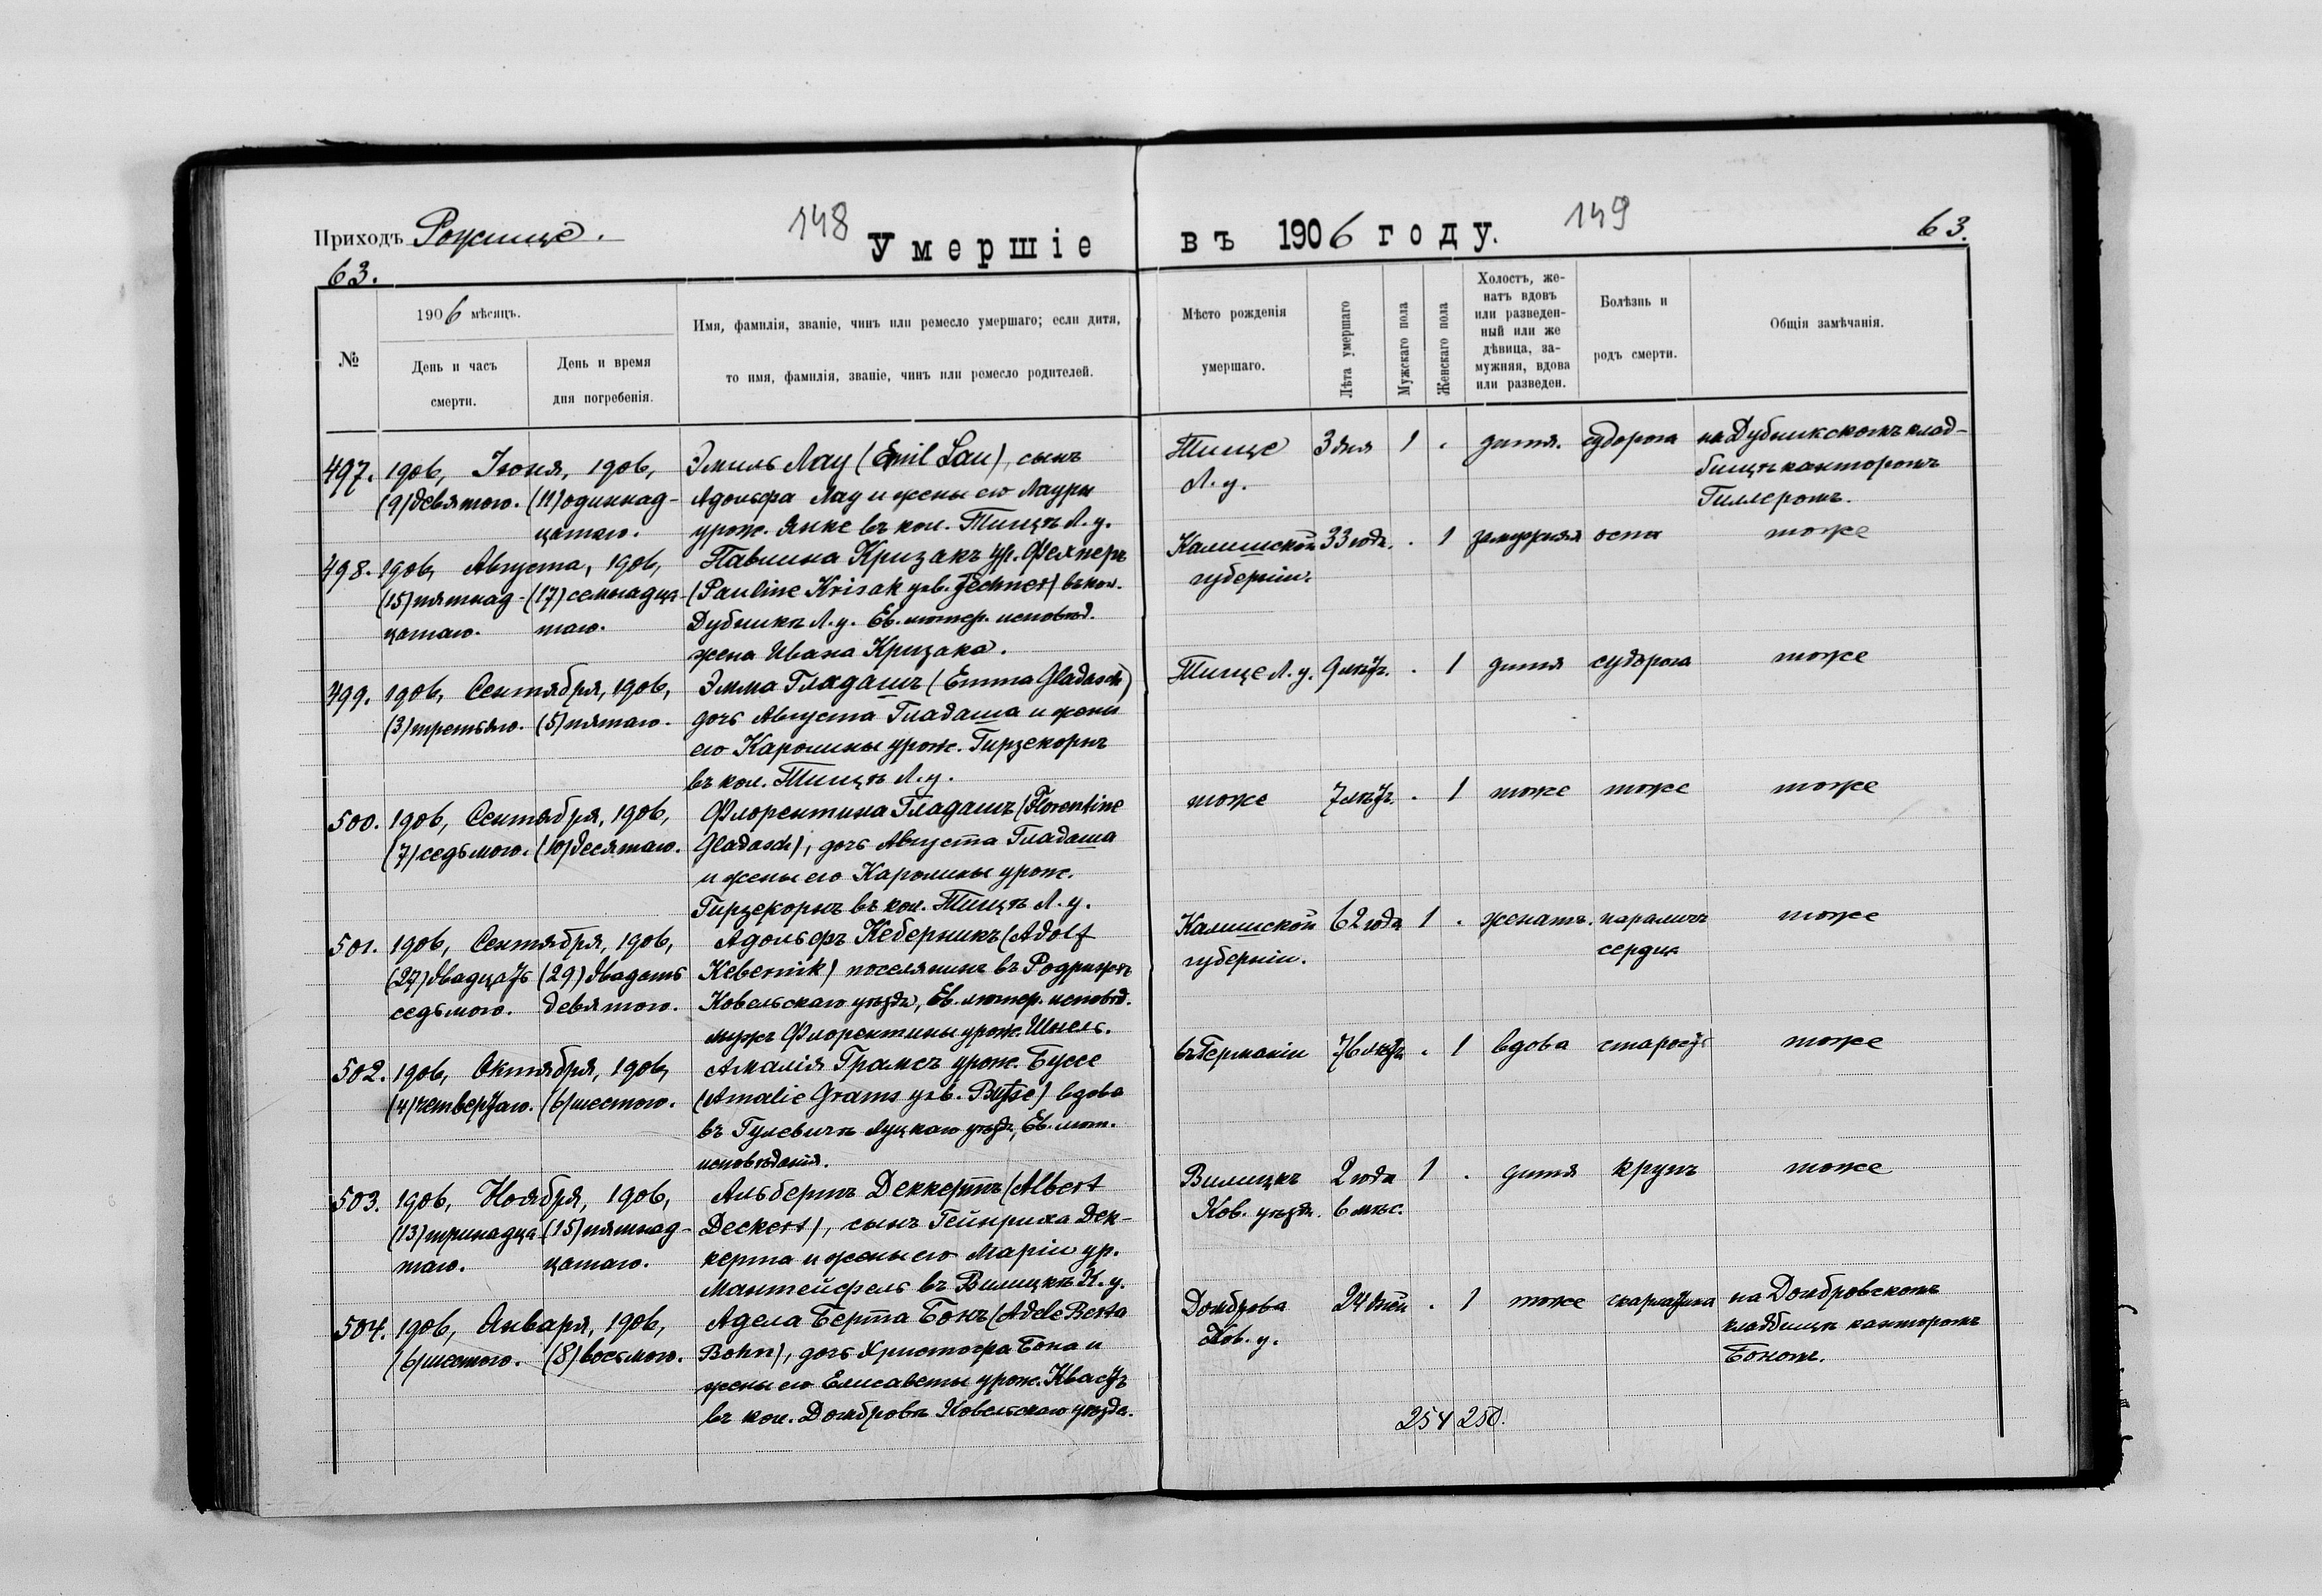 Приходъ Рожище.
148
Умершіе
въ 1906 году.
149
63.
63.
№
1906 мѣсяцъ.
День и часъ
смерти.
День и время
дня погребенія.
Имя, фамилія, званіе, чинъ или ремесло умершаго; если дитя,
то имя, фамилія, званіе, чинъ или ремесло родителей.
Мѣсто рожденія
умершаго.
Лѣта умершаго
Мужскаго пола
Женскаго пола
Холостъ, же-
натъ вдовъ
или разведен-
ный или же
дѣвица, за-
мужняя, вдова
или разведен.
Болѣзнь и
родъ смерти.
Общія замѣчанія.
497. 1906, Іюня, 1906,
(9) девятого. (11) одиннад-
цатаго.
Эмиль Лау (Emil Lau), сынъ
Адольфа Лау и жены его Лауры
урож. Янке въ кол. Тищѣ Л. у.
Тище
Л. у.
3 дня 1 . дитя. судорога
на Дубникскомъ клад-
бищѣ канторомъ
Гиллеромъ.
498. 1906, Августа, 1906,
(15) пятнад- (17) семнадца-
цатаго. таго.
Павлина Кризакъ ур. Фехнеръ
(Pauline Krisak geb. Fechner) въ кол.
Дубникъ Л. у. Ев. лютер. исповѣд.
жена Ивана Кризака.
Калишской
губерніи.
33 года. . 1 замужняя оспа тоже
499. 1906, Сентября, 1906,
(3) третьяго. (5) пятаго.
Эмма Гладашъ (Emma Gladasch)
дочь Августа Гладаша и жены
его Каролины урож. Гирзекорнъ
въ кол. Тищѣ Л. у.
Тище Л. у. 9 лѣтъ. . 1 дитя судорога тоже
500. 1906, Сентября, 1906,
(7) седьмого. (10) десятаго.
Флорентина Гладашъ (Florentine
Gladasch), дочь Августа Гладаша
и жены его Каролины урож.
Гирзекорнъ въ кол. Тищѣ Л. у.
тоже 7 лѣтъ. . 1 тоже тоже тоже
501. 1906, Сентября, 1906,
(27) двадцать (29) двадцать
седьмого. девятого.
Адольфъ Кеберникъ (Adolf
Kebernik) поселянинъ въ
Ковельскаго уѣзда, Ев. лютер. исповѣд.
мужъ Флорентины урож.
Калишской
губерніи.
62 года 1 . женатъ. параличъ
сердца
тоже
502. 1906, Октября, 1906,
(4) четвертаго. (6) шестого.
Амалія Грамсъ урож. Буссе
(Amalie Grams geb. Busse) вдова
въ Гулевичѣ Луцкаго уѣзда, Ев. лют.
исповѣданія.
въ Германіи 76 лѣтъ . 1 вдова старость тоже
503. 1906, Ноября, 1906,
(13) тринадца- (15) пятнад-
таго. цатаго.
Альбертъ Деккертъ (Albert
Deckert), сынъ Гейнриха Дек-
керта и жены его Маріи ур.
Мантейфель въ Вилицкѣ К. у.
Вилицкъ
Ков. уѣзда.
2 года
6 мѣс.
1 . дитя крупъ тоже
504. 1906, Января, 1906,
(6) шестого. (8) восьмого.
Адела Берта Бонъ (Adele Berta
Bohn), дочь Христофа Бона и
жены его Елисаветы урож. Квастъ
въ кол. Домбровѣ Ковельскаго уѣзда.
Домброва
Ков. у.
24 дней . 1 тоже скарлатина
на Домбровскомъ
кладбищѣ канторомъ
Бономъ.
254 250.